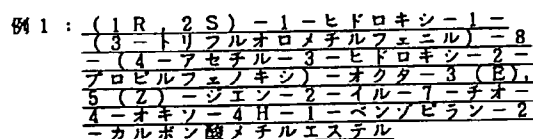 例1：(1R,2S)－1－ヒドロキシ－1－
(3－トリフルオロメチルフェニル)－8
－(4－アセチル－3－ヒドロキシ－2－
プロピルフェノキシ)－オクタ－3(E),
5(Z)－ジエン－2－イル－7－チオ－
4－オキソ－4H－1－ベンゾピラン－2
－カルボン酸メチルエステル